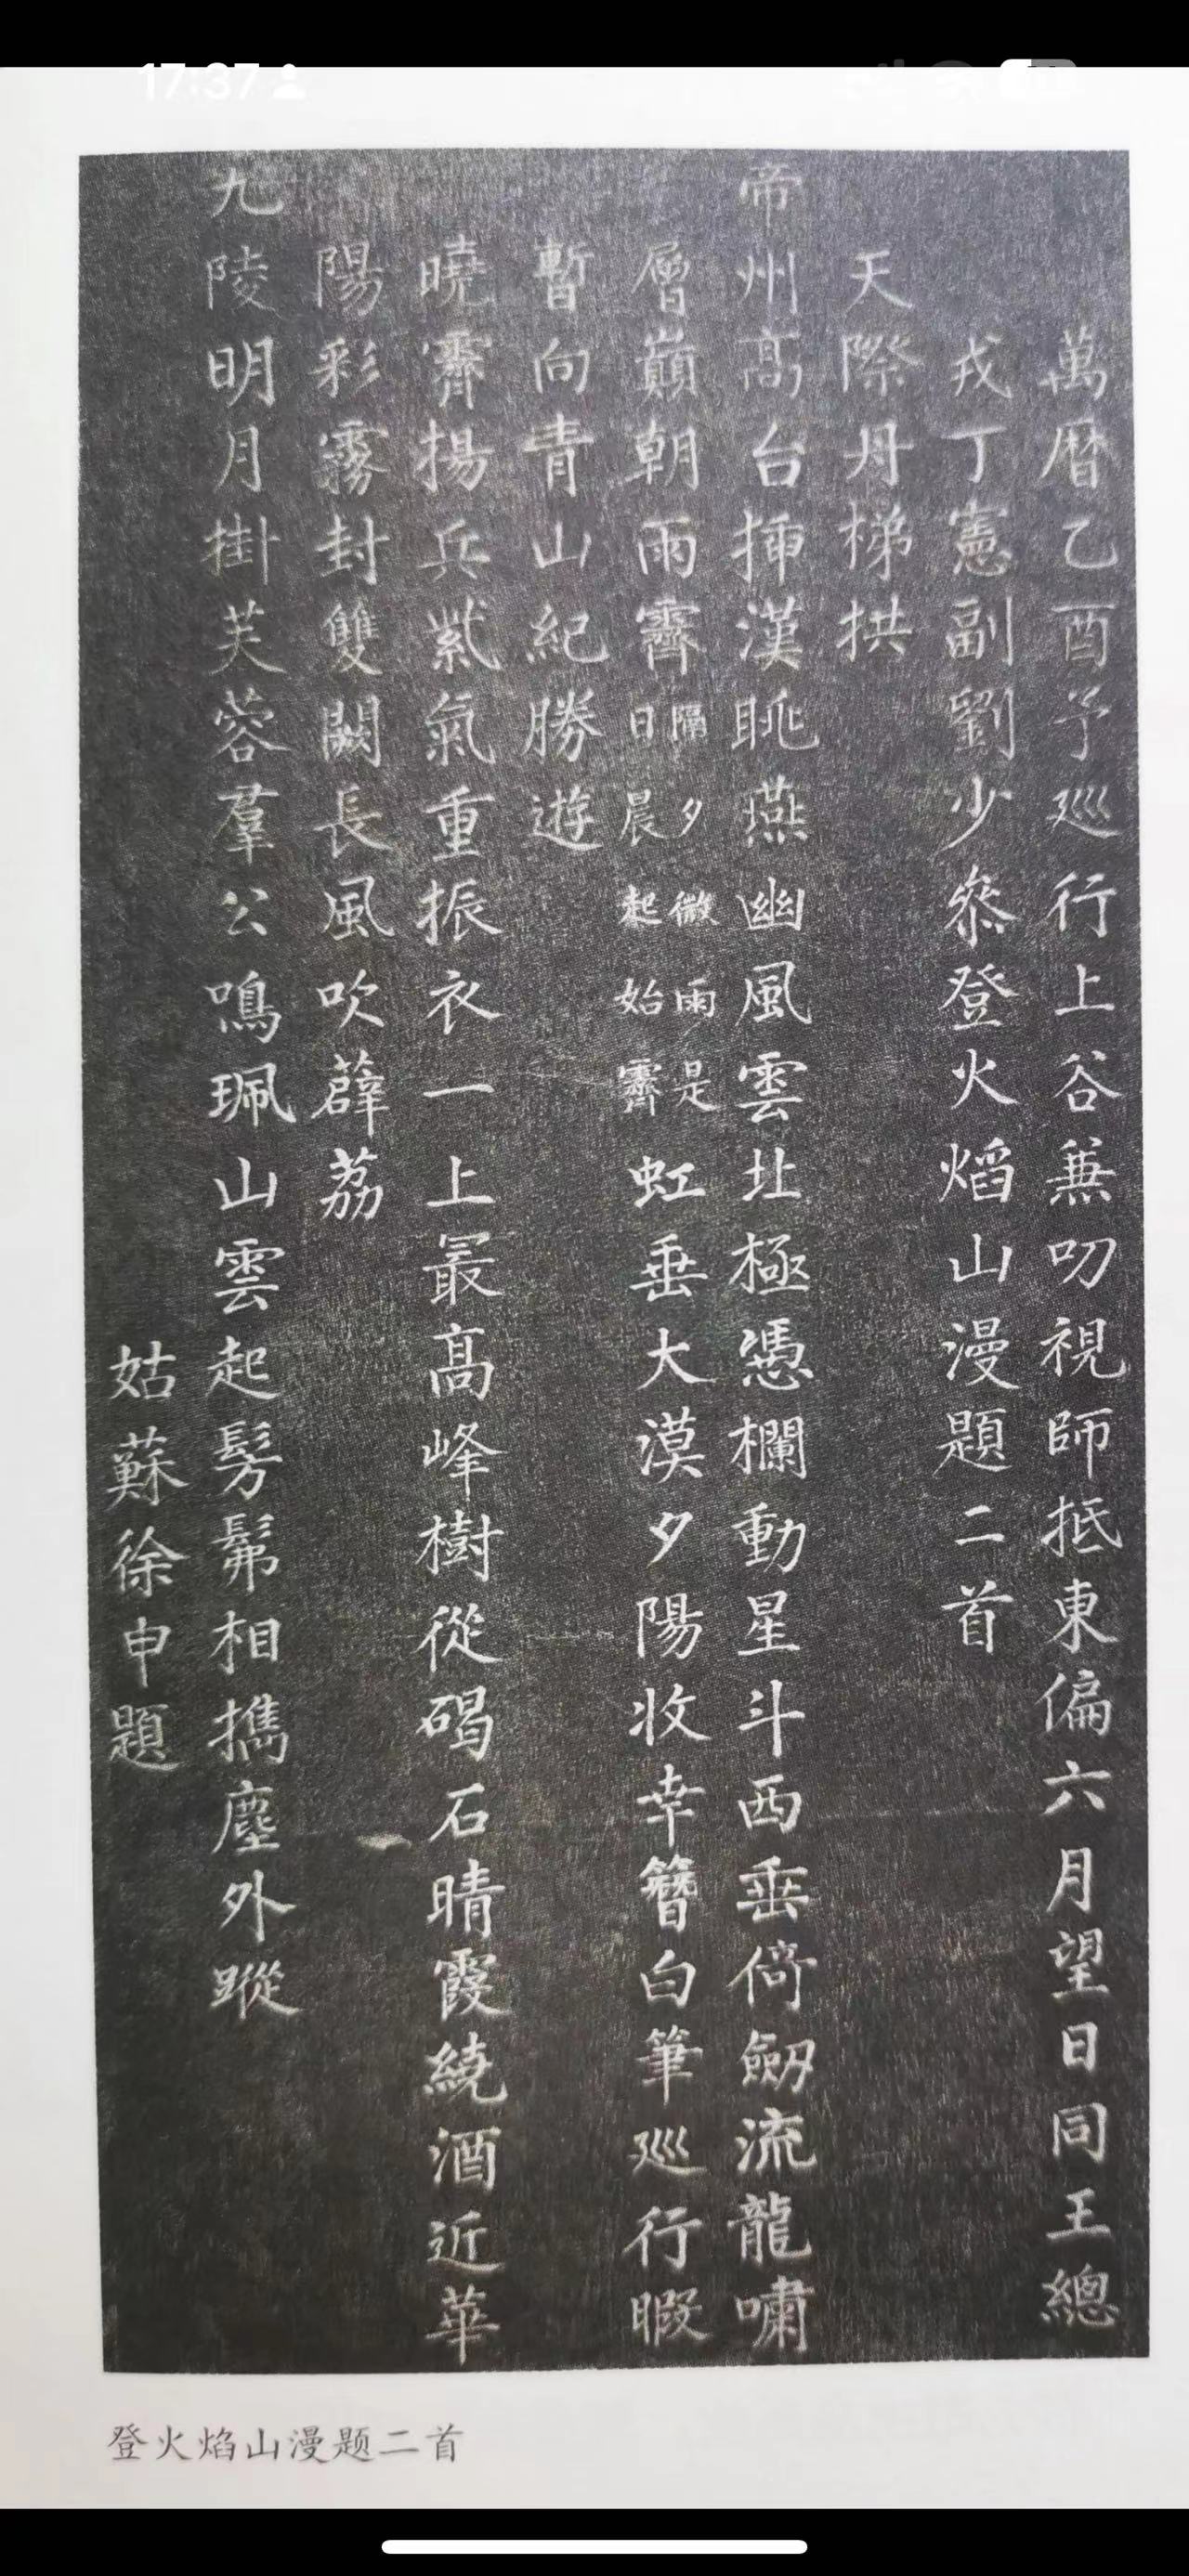 17:37
萬曆乙酉予巡行上谷兼叨視師抵東偏六月望日同王總
戎丁憲副劉少叅登火焰山漫題二首
天際丹梯拱
帝州高台挿漢眺燕幽風雲北極憑欄動星斗西垂倚劒流龍嘯
層巔朝雨霽隔夕微雨是日晨起始霽虹垂大漠夕陽收幸簪白筆巡行暇
暫向青山紀勝遊
曉霽揚兵紫氣重振衣一上最高峰樹從碣石晴霞繞酒近華
陽彩霧封雙闕長風吹薜荔
九陵明月掛芙蓉羣公鳴珮山雲起髣髴相攜塵外蹤
姑蘇徐申題
登火焰山漫题二首